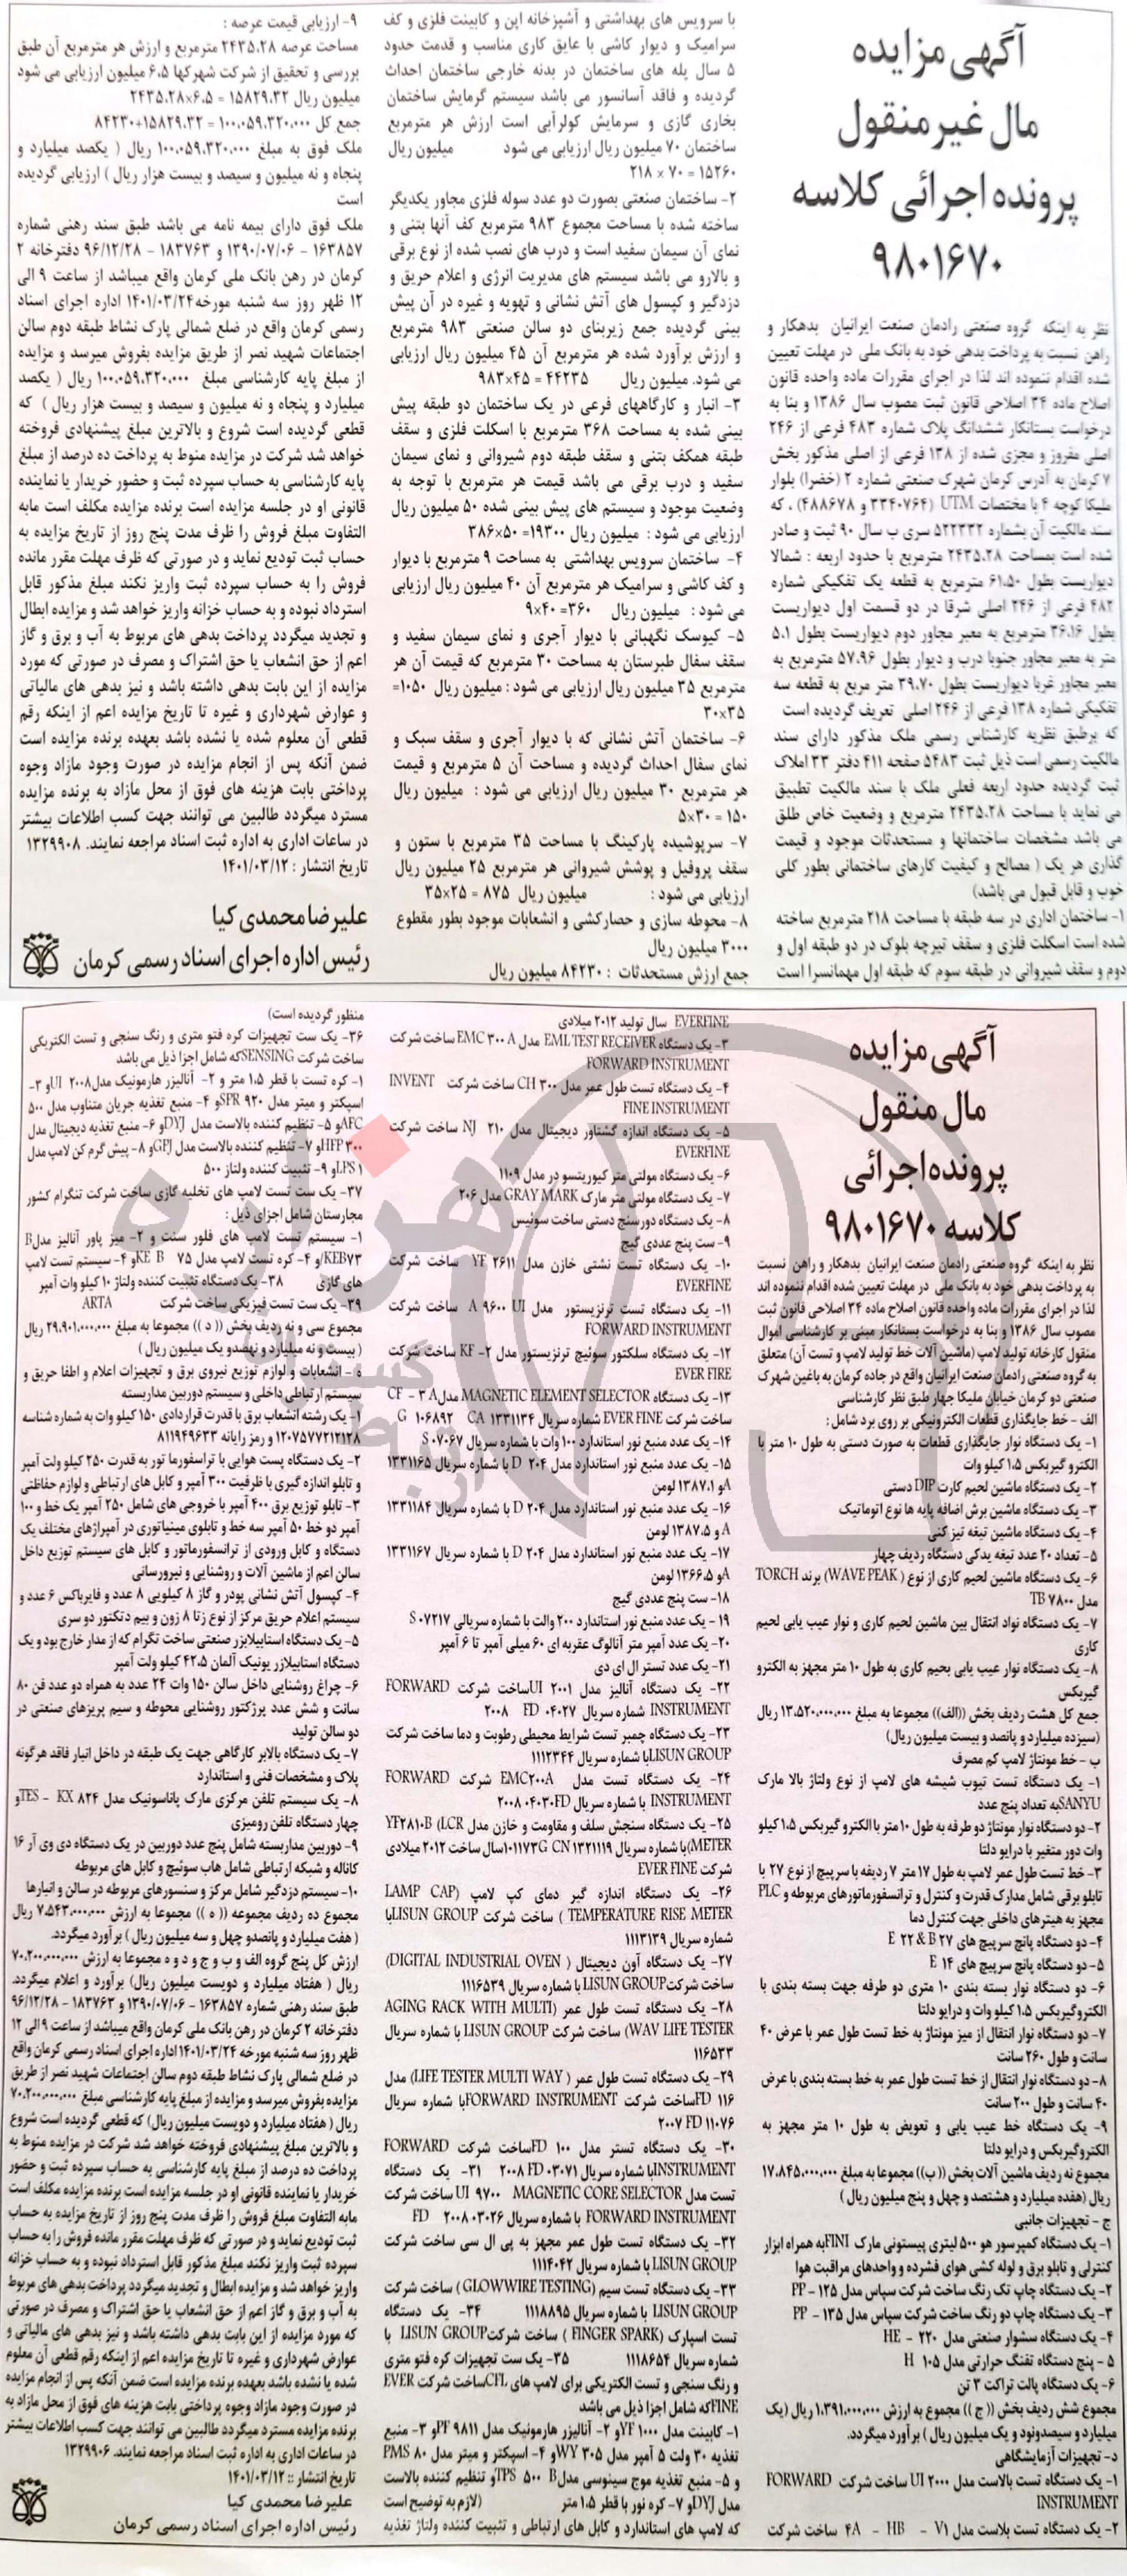 آگهی مزایده
مال غیر منقول
پرونده اجرائی کلاسه
۹۸۰۱۶۷۰
نظر به اینکه گروه صنعتی رادمان صنعت ایرانیان بدهکار و
راهن نسبت به پرداخت بدهی خود به بانک ملی در مهلت تعیین
شده اقدام ننموده اند لذا در اجرای مقررات ماده واحده قانون
اصلاح ماده ۳۴ اصلاحی قانون ثبت مصوب سال ۱۳۸۶ و بنا به
درخواست بستانکار ششدانگ پلاک شماره ۴۸۳ فرعی از ۲۴۶
اصلی مفروز و مجزی شده از ۱۳۸ فرعی از اصلی مذکور بخش
۷ کرمان به آدرس کرمان شهرک صنعتی شماره ۲ (خضرا) بلوار
ملیکا کوچه ۴ با مختصات UTM (۳۳۴۰۷۶۴ و ۴۸۸۶۷۸) ، که
سند مالکیت آن بشماره ۵۲۲۳۳۲ سری ب سال ۹۰ ثبت و صادر
شده است بمساحت ۲۴۳۵.۲۸ مترمربع با حدود اربعه : شمالا
دیواریست بطول ۶۱.۵۰ مترمربع به قطعه یک تفکیکی شماره
۴۸۲ فرعی از ۲۴۶ اصلی شرقا در دو قسمت اول دیواریست
بطول ۳۶.۱۶ مترمربع به معبر مجاور دوم دیواریست بطول ۵.۱
متر به معبر مجاور جنوبا درب و دیوار بطول ۵۷.۹۶ مترمربع به
معبر مجاور غربا دیواریست بطول ۳۹.۷۰ متر مربع به قطعه سه
تفکیکی شماره ۱۳۸ فرعی از ۲۴۶ اصلی تعریف گردیده است
که برطبق نظریه کارشناس رسمی ملک مذکور دارای سند
مالکیت رسمی است ذیل ثبت ۵۴۸۳ صفحه ۴۱۱ دفتر ۳۳ املاک
ثبت گردیده حدود اربعه فعلی ملک با سند مالکیت تطبیق
می نماید با مساحت ۲۴۳۵.۲۸ مترمربع و وضعیت خاص طلق
می باشد مشخصات ساختمانها و مستحدثات موجود و قیمت
گذاری هر یک ( مصالح و کیفیت کارهای ساختمانی بطور کلی
خوب و قابل قبول می باشد)
۱- ساختمان اداری در سه طبقه با مساحت ۲۱۸ مترمربع ساخته
شده است اسکلت فلزی و سقف تیرچه بلوک در دو طبقه اول و
دوم و سقف شیروانی در طبقه سوم که طبقه اول مهمانسرا است
با سرویس های بهداشتی و آشپزخانه اپن و کابینت فلزی و کف
سرامیک و دیوار کاشی با عایق کاری مناسب و قدمت حدود
۵ سال پله های ساختمان در بدنه خارجی ساختمان احداث
گردیده و فاقد آسانسور می باشد سیستم گرمایش ساختمان
بخاری گازی و سرمایش کولرآبی است ارزش هر مترمربع
ساختمان ۷۰ میلیون ریال ارزیابی می شود میلیون ریال
۲۱۸ × ۷۰ = ۱۵۲۶۰
۲- ساختمان صنعتی بصورت دو عدد سوله فلزی مجاور یکدیگر
ساخته شده با مساحت مجموع ۹۸۳ مترمربع کف آنها بتنی و
نمای آن سیمان سفید است و درب های نصب شده از نوع برقی
و بالارو می باشد سیستم های مدیریت انرژی و اعلام حریق و
دزدگیر و کپسول های آتش نشانی و تهویه و غیره در آن پیش
بینی گردیده جمع زیربنای دو سالن صنعتی ۹۸۳ مترمربع
و ارزش برآورد شده هر مترمربع آن ۴۵ میلیون ریال ارزیابی
می شود. میلیون ریال ۴۴۲۳۵ = ۴۵×۹۸۳
۳- انبار و کارگاههای فرعی در یک ساختمان دو طبقه پیش
بینی شده به مساحت ۳۶۸ مترمربع با اسکلت فلزی و سقف
طبقه همکف بتنی و سقف طبقه دوم شیروانی و نمای سیمان
سفید و درب برقی می باشد قیمت هر مترمربع با توجه به
وضعیت موجود و سیستم های پیش بینی شده ۵۰ میلیون ریال
ارزیابی می شود : میلیون ریال ۱۹۳۰۰= ۵۰×۳۸۶
۴- ساختمان سرویس بهداشتی به مساحت ۹ مترمربع با دیوار
و کف کاشی و سرامیک هر مترمربع آن ۴۰ میلیون ریال ارزیابی
می شود : میلیون ریال ۳۶۰= ۴۰×۹
۵- کیوسک نگهبانی با دیوار آجری و نمای سیمان سفید و
سقف سفال طبرستان به مساحت ۳۰ مترمربع که قیمت آن هر
مترمربع ۳۵ میلیون ریال ارزیابی می شود : میلیون ریال ۱۰۵۰=
۳۰×۳۵
۶- ساختمان آتش نشانی که با دیوار آجری و سقف سبک و
نمای سفال احداث گردیده و مساحت آن ۵ مترمربع و قیمت
هر مترمربع ۳۰ میلیون ریال ارزیابی می شود : میلیون ریال
۱۵۰ = ۳۰×۵
۷- سرپوشیده پارکینگ با مساحت ۳۵ مترمربع با ستون و
سقف پروفیل و پوشش شیروانی هر مترمربع ۲۵ میلیون ریال
ارزیابی می شود : میلیون ریال ۸۷۵ = ۲۵×۳۵
۸- محوطه سازی و حصارکشی و انشعابات موجود بطور مقطوع
۳۰۰۰ میلیون ریال
جمع ارزش مستحدثات : ۸۴۲۳۰ میلیون ریال
۹- ارزیابی قیمت عرصه :
مساحت عرصه ۲۴۳۵.۲۸ مترمربع و ارزش هر مترمربع آن طبق
بررسی و تحقیق از شرکت شهرکها ۶.۵ میلیون ارزیابی می شود
میلیون ریال ۱۵۸۲۹.۳۲ = ۶.۵×۲۴۳۵.۲۸
جمع کل ۱۰۰.۰۵۹.۳۲۰.۰۰۰ = ۱۵۸۲۹.۳۲+۸۴۲۳۰
ملک فوق به مبلغ ۱۰۰.۰۵۹.۳۲۰.۰۰۰ ریال ( یکصد میلیارد و
پنجاه و نه میلیون و سیصد و بیست هزار ریال ) ارزیابی گردیده
است
ملک فوق دارای بیمه نامه می باشد طبق سند رهنی شماره
۱۶۳۸۵۷ - ۱۳۹۰/۰۷/۰۶ و ۱۸۳۷۶۳ - ۹۶/۱۲/۲۸ دفترخانه ۲
کرمان در رهن بانک ملی کرمان واقع میباشد از ساعت ۹ الی
۱۲ ظهر روز سه شنبه مورخه ۱۴۰۱/۰۳/۲۴ اداره اجرای اسناد
رسمی کرمان واقع در ضلع شمالی پارک نشاط طبقه دوم سالن
اجتماعات شهید نصر از طریق مزایده بفروش میرسد و مزایده
از مبلغ پایه کارشناسی مبلغ ۱۰۰.۰۵۹.۳۲۰.۰۰۰ ریال ( یکصد
میلیارد و پنجاه و نه میلیون و سیصد و بیست هزار ریال ) که
قطعی گردیده است شروع و بالاترین مبلغ پیشنهادی فروخته
خواهد شد شرکت در مزایده منوط به پرداخت ده درصد از مبلغ
پایه کارشناسی به حساب سپرده ثبت و حضور خریدار یا نماینده
قانونی او در جلسه مزایده است برنده مزایده مکلف است مابه
التفاوت مبلغ فروش را ظرف مدت پنج روز از تاریخ مزایده به
حساب ثبت تودیع نماید و در صورتی که ظرف مهلت مقرر مانده
فروش را به حساب سپرده ثبت واریز نکند مبلغ مذکور قابل
استرداد نبوده و به حساب خزانه واریز خواهد شد و مزایده ابطال
و تجدید میگردد پرداخت بدهی های مربوط به آب و برق و گاز
اعم از حق انشعاب یا حق اشتراک و مصرف در صورتی که مورد
مزایده از این بابت بدهی داشته باشد و نیز بدهی های مالیاتی
و عوارض شهرداری و غیره تا تاریخ مزایده اعم از اینکه رقم
قطعی آن معلوم شده یا نشده باشد بعهده برنده مزایده است
ضمن آنکه پس از انجام مزایده در صورت وجود مازاد وجوه
پرداختی بابت هزینه های فوق از محل مازاد به برنده مزایده
مسترد میگردد طالبین می توانند جهت کسب اطلاعات بیشتر
در ساعات اداری به اداره ثبت اسناد مراجعه نمایند. ۱۳۲۹۹۰۸
تاریخ انتشار : ۱۴۰۱/۰۳/۱۲
علیرضا محمدی کیا
رئیس اداره اجرای اسناد رسمی کرمان
آگهی مزایده
مال منقول
پرونده اجرائی
کلاسه ۹۸۰۱۶۷۰
نظر به اینکه گروه صنعتی رادمان صنعت ایرانیان بدهکار و راهن نسبت
به پرداخت بدهی خود به بانک ملی در مهلت تعیین شده اقدام ننموده اند
لذا در اجرای مقررات ماده واحده قانون اصلاح ماده ۳۴ اصلاحی قانون ثبت
مصوب سال ۱۳۸۶ و بنا به درخواست بستانکار مبنی بر کارشناسی اموال
منقول کارخانه تولید لامپ (ماشین آلات خط تولید لامپ و تست آن) متعلق
به گروه صنعتی رادمان صنعت ایرانیان واقع در جاده کرمان به باغین شهرک
صنعتی دو کرمان خیابان ملیکا چهار طبق نظر کارشناسی
الف - خط جایگذاری قطعات الکترونیکی بر روی برد شامل :
۱- یک دستگاه نوار جایگذاری قطعات به صورت دستی به طول ۱۰ متر با
الکترو گیربکس ۱.۵ کیلو وات
۲- یک دستگاه ماشین لحیم کارت DIP دستی
۳- یک دستگاه ماشین برش اضافه پایه ها نوع اتوماتیک
۴- یک دستگاه ماشین تیغه تیز کنی
۵- تعداد ۲۰ عدد تیغه یدکی دستگاه ردیف چهار
۶- یک دستگاه ماشین لحیم کاری از نوع (WAVE PEAK) برند TORCH
مدل TB ۷۸۰۰
۷- یک دستگاه نواد انتقال بین ماشین لحیم کاری و نوار عیب یابی لحیم
کاری
۸- یک دستگاه نوار عیب یابی بحیم کاری به طول ۱۰ متر مجهز به الکترو
گیربکس
جمع کل هشت ردیف بخش ((الف)) مجموعا به مبلغ ۱۳.۵۲۰.۰۰۰.۰۰۰ ریال
(سیزده میلیارد و پانصد و بیست میلیون ریال)
ب - خط مونتاژ لامپ کم مصرف
۱- یک دستگاه تست تیوب شیشه های لامپ از نوع ولتاژ بالا مارک
SANYUبه تعداد پنج عدد
۲- دو دستگاه نوار مونتاژ دو طرفه به طول ۱۰ متر با الکترو گیربکس ۱.۵ کیلو
وات دور متغیر با درایو دلتا
۳- خط تست طول عمر لامپ به طول ۱۷ متر ۷ ردیفه با سرپیچ از نوع ۲۷ با
تابلو برقی شامل مدارک قدرت و کنترل و ترانسفورماتورهای مربوطه و PLC
مجهز به هیترهای داخلی جهت کنترل دما
۴- دو دستگاه پانچ سرپیچ های E ۲۲ & B ۲۷
۵- دو دستگاه پانچ سرپیچ های E ۱۴
۶- دو دستگاه نوار بسته بندی ۱۰ متری دو طرفه جهت بسته بندی با
الکتروگیربکس ۱.۵ کیلو وات و درایو دلتا
۷- دو دستگاه نوار انتقال از میز مونتاژ به خط تست طول عمر با عرض ۴۰
سانت و طول ۲۶۰ سانت
۸- دو دستگاه نوار انتقال از خط تست طول عمر به خط بسته بندی با عرض
۴۰ سانت و طول ۲۰۰ سانت
۹- یک دستگاه خط عیب یابی و تعویض به طول ۱۰ متر مجهز به
الکتروگیربکس و درایو دلتا
مجموع نه ردیف ماشین آلات بخش ((ب)) مجموعا به مبلغ ۱۷.۸۴۵.۰۰۰.۰۰۰
ریال (هفده میلیارد و هشتصد و چهل و پنج میلیون ریال )
ج - تجهیزات جانبی
۱- یک دستگاه کمپرسور هو ۵۰۰ لیتری پیستونی مارک FINIبه همراه ابزار
کنترلی و تابلو برق و لوله کشی هوای فشرده و واحدهای مراقبت هوا
۲- یک دستگاه چاپ تک رنگ ساخت شرکت سپاس مدل PP - ۱۲۵
۳- یک دستگاه چاپ دو رنگ ساخت شرکت سپاس مدل PP - ۱۳۵
۴- یک دستگاه سشوار صنعتی مدل HE - ۲۲۰
۵ - پنج دستگاه تفنگ حرارتی مدل H ۱۰۵
۶- یک دستگاه پالت تراکت ۳ تن
مجموع شش ردیف بخش (( ج )) مجموع به ارزش ۱.۳۹۱.۰۰۰.۰۰۰ ریال (یک
میلیارد و سیصدونود و یک میلیون ریال ) برآورد میگردد.
د- تجهیزات آزمایشگاهی
۱- یک دستگاه تست بالاست مدل UI ۲۰۰۰ ساخت شرکت FORWARD
INSTRUMENT
۲- یک دستگاه تست بلاست مدل ۴A - HB - V۱ ساخت شرکت
EVERFINE سال تولید ۲۰۱۲ میلادی
۳- یک دستگاه EML TEST RECEIVER مدل EMC ۳۰۰ A ساخت شرکت
FORWARD INSTRUMENT
۴- یک دستگاه تست طول عمر مدل CH ۳۰۰ ساخت شرکت INVENT
FINE INSTRUMENT
۵- یک دستگاه اندازه گشتاور دیجیتال مدل NJ ۲۱۰ ساخت شرکت
EVERFINE
۶- یک دستگاه مولتی متر کیوریتسو در مدل ۱۱۰۹
۷- یک دستگاه مولتی متر مارک GRAY MARK مدل ۲۰۶
۸- یک دستگاه دورسنج دستی ساخت سوئیس
۹- ست پنج عددی گیج
۱۰- یک دستگاه تست نشتی خازن مدل YF ۲۶۱۱ ساخت شرکت
EVERFINE
۱۱- یک دستگاه تست ترنزیستور مدل A ۹۶۰۰ UI ساخت شرکت
FORWARD INSTRUMENT
۱۲- یک دستگاه سلکتور سوئیچ ترنزیستور مدل KF -۲ ساخت شرکت
EVER FIRE
۱۳- یک دستگاه MAGNETIC ELEMENT SELECTOR مدل CF - ۳ A
ساخت شرکت EVER FINE شماره سریال G ۱۰۶۸۹۲ CA ۱۳۳۱۱۳۴
۱۴- یک عدد منبع نور استاندارد ۱۰۰ وات با شماره سریال S ۰۷۰۶۷
۱۵- یک عدد منبع نور استاندارد مدل D ۲۰۴ با شماره سریال ۱۳۳۱۱۶۵
Aو ۱۳۸۷.۱ لومن
۱۶- یک عدد منبع نور استاندارد مدل D ۲۰۴ با شماره سریال ۱۳۳۱۱۸۴
Aو ۱۳۸۷.۵ لومن
۱۷- یک عدد منبع نور استاندارد مدل D ۲۰۴ با شماره سریال ۱۳۳۱۱۶۷
Aو ۱۳۶۶.۵ لومن
۱۸- ست پنج عددی گیج
۱۹- یک عدد منبع نور استاندارد ۲۰۰ والت با شماره سریالی S ۰۷۲۱۷
۲۰- یک عدد آمپر متر آنالوگ عقربه ای ۶۰ میلی آمپر تا ۶ آمپر
۲۱- یک عدد تستر ال ای دی
۲۲- یک دستگاه آنالیز مدل UI ۲۰۰۱ساخت شرکت FORWARD
INSTRUMENT شماره سریال ۲۰۰۸ FD ۰۴۰۲۷
۲۳- یک دستگاه چمبر تست شرایط محیطی رطوبت و دما ساخت شرکت
LISUN GROUPبا شماره سریال ۱۱۱۲۳۴۴
۲۴- یک دستگاه تست مدل EMC۲۰۰A شرکت FORWARD
INSTRUMENT با شماره سریال ۲۰۰۸۰۴۰۳۰FD
۲۵- یک دستگاه سنجش سلف و مقاومت و خازن مدل YF۲۸۱۰B (LCR
METER)با شماره سریال ۱۰۱۱۷۳G CN ۱۳۲۱۱۱۹سال ساخت ۲۰۱۲ میلادی
شرکت EVER FINE
۲۶- یک دستگاه اندازه گیر دمای کپ لامپ (LAMP CAP
TEMPERATURE RISE METER ) ساخت شرکت LISUN GROUPبا
شماره سریال ۱۱۱۳۱۳۹
۲۷- یک دستگاه آون دیجیتال ( DIGITAL INDUSTRIAL OVEN)
ساخت شرکت LISUN GROUPبا شماره سریال ۱۱۱۶۵۳۹
۲۸- یک دستگاه تست طول عمر (AGING RACK WITH MULTI
WAV LIFE TESTER) ساخت شرکت LISUN GROUP با شماره سریال
۱۱۶۵۳۳
۲۹- یک دستگاه تست طول عمر ( LIFE TESTER MULTI WAY) مدل
FD ۱۱۶ساخت شرکت FORWARD INSTRUMENTبا شماره سریال
۲۰۰۷ FD ۱۱۰۷۶
۳۰- یک دستگاه تستر مدل FD ۱۰۰ساخت شرکت FORWARD
INSTRUMENTبا شماره سریال ۲۰۰۸ FD ۰۳۰۷۱ ۳۱- یک دستگاه
تست مدل UI ۹۷۰۰ MAGNETIC CORE SELECTOR ساخت شرکت
FORWARD INSTRUMENT با شماره سریال FD ۲۰۰۸ ۰۳۰۲۶
۳۲- یک دستگاه تست طول عمر مجهز به پی ال سی ساخت شرکت
LISUN GROUP با شماره سریال ۱۱۱۴۰۴۲
۳۳- یک دستگاه تست سیم (GLOWWIRE TESTING ) ساخت شرکت
LISUN GROUP با شماره سریال ۱۱۱۸۸۹۵ ۳۴- یک دستگاه
تست اسپارک (FINGER SPARK ) ساخت شرکت LISUN GROUP با
شماره سریال ۱۱۱۸۶۵۴ ۳۵- یک ست تجهیزات کره فتو متری
و رنگ سنجی و تست الکتریکی برای لامپ های CFLساخت شرکت EVER
FINEکه شامل اجزا ذیل می باشد
۱- کابینت مدل YF ۱۰۰۰و ۲- آنالیزر هارمونیک مدل PF ۹۸۱۱و ۳- منبع
تغذیه ۳۰ ولت ۵ آمپر مدل WY ۳۰۵و ۴- اسپکتر و میتر مدل PMS ۸۰
و ۵- منبع تغذیه موج سینوسی مدل TPS ۵۰۰ Bو تنظیم کننده بالاست
مدل DYJو ۷- کره نور با قطر ۱.۵ متر (لازم به توضیح است
که لامپ های استاندارد و کابل های ارتباطی و تثبیت کننده ولتاژ تغذیه
منظور گردیده است)
۳۶- یک ست تجهیزات کره فتو متری و رنگ سنجی و تست الکتریکی
ساخت شرکت SENSINGکه شامل اجزا ذیل می باشد
۱- کره تست با قطر ۱.۵ متر و ۲- آنالیزر هارمونیک مدل UI ۲۰۰۸و ۳-
اسپکتر و میتر مدل SPR ۹۲۰و ۴- منبع تغذیه جریان متناوب مدل ۵۰۰
AFCو ۵- تنظیم کننده بالاست مدل DYJو ۶- منبع تغذیه دیجیتال مدل
HFP ۳۰۰و ۷- تنظیم کننده بالاست مدل GPJو ۸- پیش گرم کن لامپ مدل
LPS ۱و ۹- تثبیت کننده ولتاژ ۵۰۰
۳۷- یک ست تست لامپ های تخلیه گازی ساخت شرکت تنگرام کشور
مجارستان شامل اجزای ذیل :
۱- سیستم تست لامپ های فلور سنت و ۲- میز پاور آنالیز مدلB
KEB۷۳/و ۴- کره تست لامپ مدل KE B ۷۵و ۴- سیستم تست لامپ
های گازی ۳۸- یک دستگاه تثبیت کننده ولتاژ ۱۰ کیلو وات آمپر
۳۹- یک ست تست فیزیکی ساخت شرکت ARTA
مجموع سی و نه ردیف بخش (( د )) مجموعا به مبلغ ۲۹.۹۰۱.۰۰۰.۰۰۰ ریال
(بیست و نه میلیارد و نهصدو یک میلیون ریال )
ه - انشعابات و لوازم توزیع نیروی برق و تجهیزات اعلام و اطفا حریق و
سیستم ارتباطی داخلی و سیستم دوربین مداربسته
۱- یک رشته انشعاب برق با قدرت قراردادی ۱۵۰ کیلو وات به شماره شناسه
۱۲۰۷۵۷۷۲۱۲۱۲۸ و رمز رایانه ۸۱۱۹۴۹۶۳۳
۲- یک دستگاه پست هوایی با تراسفورما تور به قدرت ۲۵۰ کیلو ولت آمپر
و تابلو اندازه گیری با ظرفیت ۳۰۰ آمپر و کابل های ارتباطی و لوازم حفاظتی
۳- تابلو توزیع برق ۴۰۰ آمپر با خروجی های شامل ۲۵۰ آمپر یک خط و ۱۰۰
آمپر دو خط ۵۰ آمپر سه خط و تابلوی مینیاتوری در آمپراژهای مختلف یک
دستگاه و کابل ورودی از ترانسفورماتور و کابل های سیستم توزیع داخل
سالن اعم از ماشین آلات و روشنایی و نیرورسانی
۴- کپسول آتش نشانی پودر و گاز ۸ کیلویی ۸ عدد و فایرباکس ۶ عدد و
سیستم اعلام حریق مرکز از نوع زتا ۸ زون و بیم دتکتور دو سری
۵- یک دستگاه استابیلایزر صنعتی ساخت تگرام که از مدار خارج بود و یک
دستگاه استابیلازر یونیک آلمان ۴۲.۵ کیلو ولت آمپر
۶- چراغ روشنایی داخل سالن ۱۵۰ وات ۲۴ عدد به همراه دو عدد فن ۸۰
سانت و شش عدد پرژکتور روشنایی محوطه و سیم پریزهای صنعتی در
دو سالن تولید
۷- یک دستگاه بالابر کارگاهی جهت یک طبقه در داخل انبار فاقد هرگونه
پلاک و مشخصات فنی و استاندارد
۸- یک سیستم تلفن مرکزی مارک پاناسونیک مدل TES - KX ۸۲۴و
چهار دستگاه تلفن رومیزی
۹- دوربین مداربسته شامل پنج عدد دوربین در یک دستگاه دی وی آر ۱۶
کاناله و شبکه ارتباطی شامل هاب سوئیچ و کابل های مربوطه
۱۰- سیستم دزدگیر شامل مرکز و سنسورهای مربوطه در سالن و انبارها
مجموع ده ردیف مجموعه (( ه )) مجموعا به ارزش ۷.۵۴۳.۰۰۰.۰۰۰ ریال
( هفت میلیارد و پانصدو چهل و سه میلیون ریال ) برآورد میگردد.
ارزش کل پنج گروه الف و ب و ج و د و ه مجموعا به ارزش ۷۰.۲۰۰.۰۰۰.۰۰۰
ریال ( هفتاد میلیارد و دویست میلیون ریال) برآورد و اعلام میگردد.
طبق سند رهنی شماره ۱۶۳۸۵۷ - ۱۳۹۰/۰۷/۰۶ و ۱۸۳۷۶۳ - ۹۶/۱۲/۲۸
دفترخانه ۲ کرمان در رهن بانک ملی کرمان واقع میباشد از ساعت ۹ الی ۱۲
ظهر روز سه شنبه مورخه ۱۴۰۱/۰۳/۲۴اداره اجرای اسناد رسمی کرمان واقع
در ضلع شمالی پارک نشاط طبقه دوم سالن اجتماعات شهید نصر از طریق
مزایده بفروش میرسد و مزایده از مبلغ پایه کارشناسی مبلغ ۷۰.۲۰۰.۰۰۰.۰۰۰
ریال ( هفتاد میلیارد و دویست میلیون ریال) که قطعی گردیده است شروع
و بالاترین مبلغ پیشنهادی فروخته خواهد شد شرکت در مزایده منوط به
پرداخت ده درصد از مبلغ پایه کارشناسی به حساب سپرده ثبت و حضور
خریدار یا نماینده قانونی او در جلسه مزایده است برنده مزایده مکلف است
مابه التفاوت مبلغ فروش را ظرف مدت پنج روز از تاریخ مزایده به حساب
ثبت تودیع نماید و در صورتی که ظرف مهلت مقرر مانده فروش را به حساب
سپرده ثبت واریز نکند مبلغ مذکور قابل استرداد نبوده و به حساب خزانه
واریز خواهد شد و مزایده ابطال و تجدید میگردد پرداخت بدهی های مربوط
به آب و برق و گاز اعم از حق انشعاب یا حق اشتراک و مصرف در صورتی
که مورد مزایده از این بابت بدهی داشته باشد و نیز بدهی های مالیاتی و
عوارض شهرداری و غیره تا تاریخ مزایده اعم از اینکه رقم قطعی آن معلوم
شده یا نشده باشد بعهده برنده مزایده است ضمن آنکه پس از انجام مزایده
در صورت وجود مازاد وجوه پرداختی بابت هزینه های فوق از محل مازاد به
برنده مزایده مسترد میگردد طالبین می توانند جهت کسب اطلاعات بیشتر
در ساعات اداری به اداره ثبت اسناد مراجعه نمایند. ۱۳۲۹۹۰۶
تاریخ انتشار :: ۱۴۰۱/۰۳/۱۲
علیرضا محمدی کیا
رئیس اداره اجرای اسناد رسمی کرمان